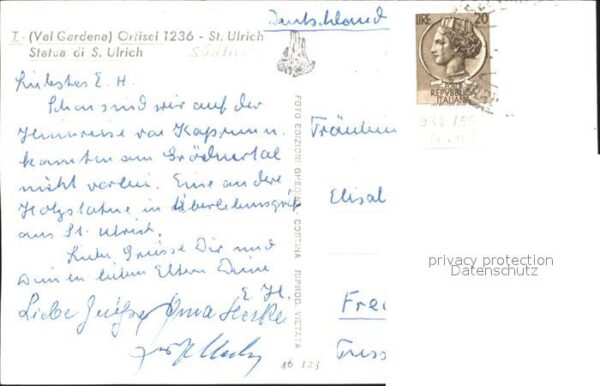 Deutschland
I - (Val Gardena) Ortisei 1236 - St. Ulrich
Statua di S. Ulrich
LIRE 20
REPVBBLICA
ITALIANA
Liebstes E. H.
Schon sind wir auf der
Heimreise von Kaprun u.
konnten am Grödnertal
nicht vorbei. Eine andere
Holzstatue in Überlebensgröße
aus St. Ulrich.
Liebe Grüsse Dir und
Deinen lieben Eltern Deine
E. H.
Liebe Grüße Oma
FOTO EDIZIONI GHEDINA - CORTINA RIPROD. VIETATA
Fräulein
Elisa
privacy protection
Datenschutz
Fre
Tress